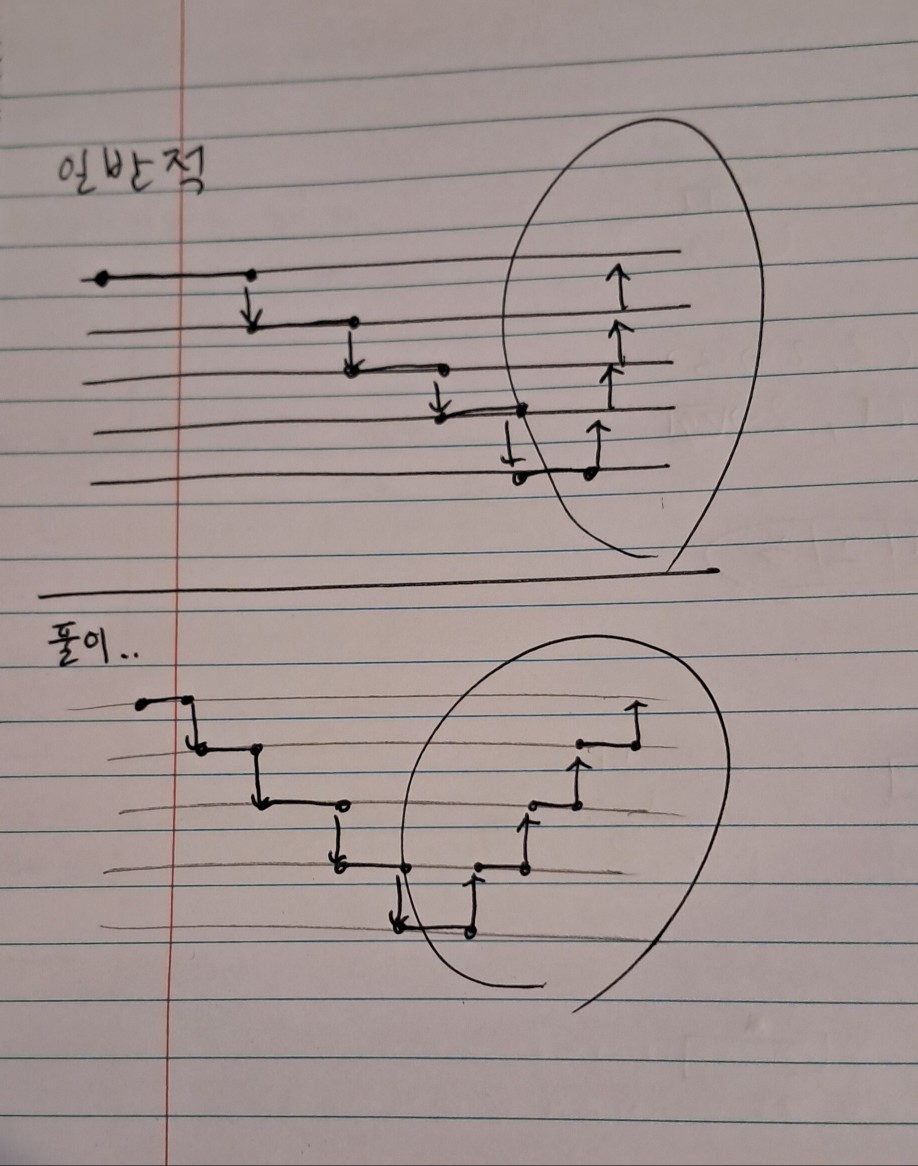 일반적
풀이..